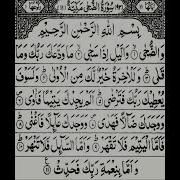 سُوْرَةُ الضُّحٰى مَكِّيَّةٌ
بِسْمِ اللّٰهِ الرَّحْمٰنِ الرَّحِيْمِ
وَالضُّحٰى ۙ وَالَّيْلِ اِذَا سَجٰى ۙ مَا وَدَّعَكَ رَبُّكَ وَمَا
قَلٰى ؕ وَلَلْاٰخِرَةُ خَيْرٌ لَّكَ مِنَ الْاُوْلٰى ؕ وَلَسَوْفَ
يُعْطِيْكَ رَبُّكَ فَتَرْضٰى ؕ اَلَمْ يَجِدْكَ يَتِيْمًا فَاٰوٰى ۪
وَوَجَدَكَ ضَآلًّا فَهَدٰى ۪ وَوَجَدَكَ عَآئِلًا فَاَغْنٰى ؕ
فَاَمَّا الْيَتِيْمَ فَلَا تَقْهَرْ ؕ وَاَمَّا السَّآئِلَ فَلَا تَنْهَرْ ؕ
وَاَمَّا بِنِعْمَةِ رَبِّكَ فَحَدِّثْ